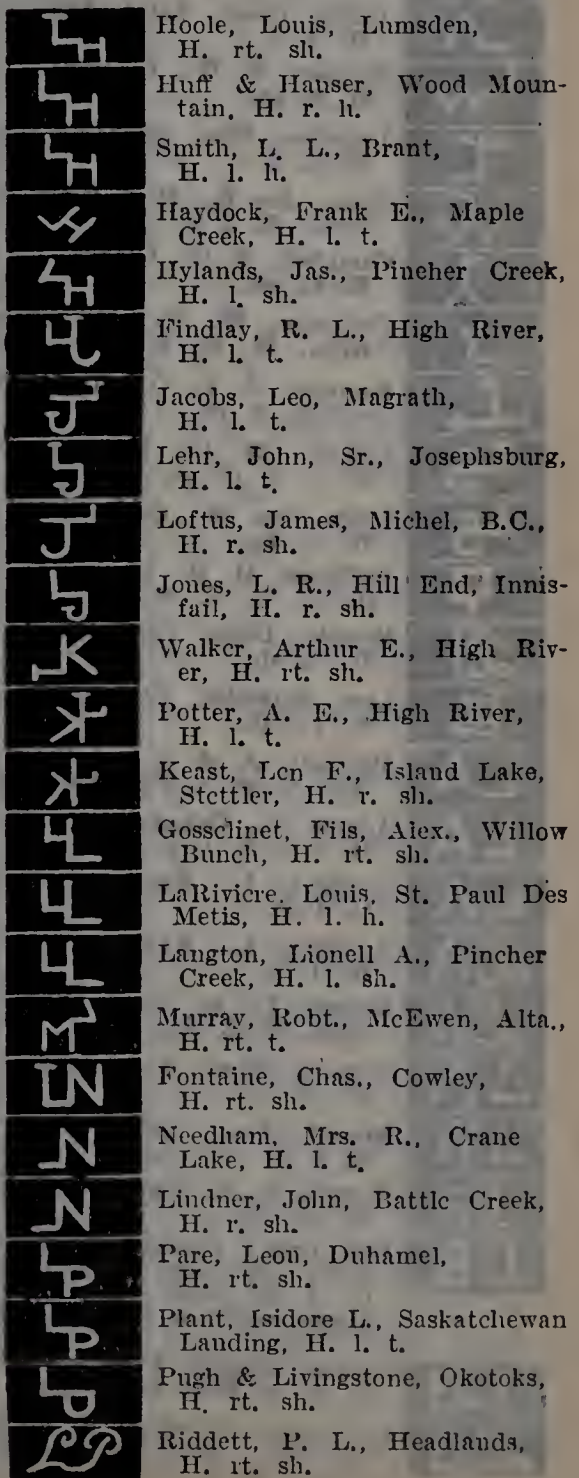 Hoole, Louis, Lumsden,
H. rt. sh.
Huff & Hauser, Wood Moun-
tain, H. r. h.
Smith, L. L., Brant,
H. l. h.
Haydock, Frank E., Maple
Creek, H. l. t.
Hylands, Jas., Pincher Creek,
H. l. sh.
Findlay, R. L., High River,
H. l. t.
Jacobs, Leo, Magrath,
H. l. t.
Lehr, John, Sr., Josephsburg,
H. l. t.
Loftus, James, Michel, B.C.,
H. r. sh.
Jones, L. R., Hill End, Innis-
fail, H. r. sh.
Walker, Arthur E., High Riv-
er, H. rt. sh.
Potter, A. E., High River,
H. l. t.
Keast, Len F., Island Lake,
Stettler, H. r. sh.
Gosselinet, Fils, Alex., Willow
Bunch, H. rt. sh.
LaRiviere, Louis, St. Paul Des
Metis, H. l. h.
Langton, Lionell A., Pincher
Creek, H. l. sh.
Murray, Robt., McEwen, Alta.,
H. rt. t.
Fontaine, Chas., Cowley,
H. rt. sh.
Needham, Mrs. R., Crane
Lake, H. l. t.
Lindner, John, Battle Creek,
H. r. sh.
Pare, Leon, Duhamel,
H. rt. sh.
Plant, Isidore L., Saskatchewan
Landing, H. l. t.
Pugh & Livingstone, Okotoks,
H. rt. sh.
Riddett, P. L., Headlands,
H. rt. sh.